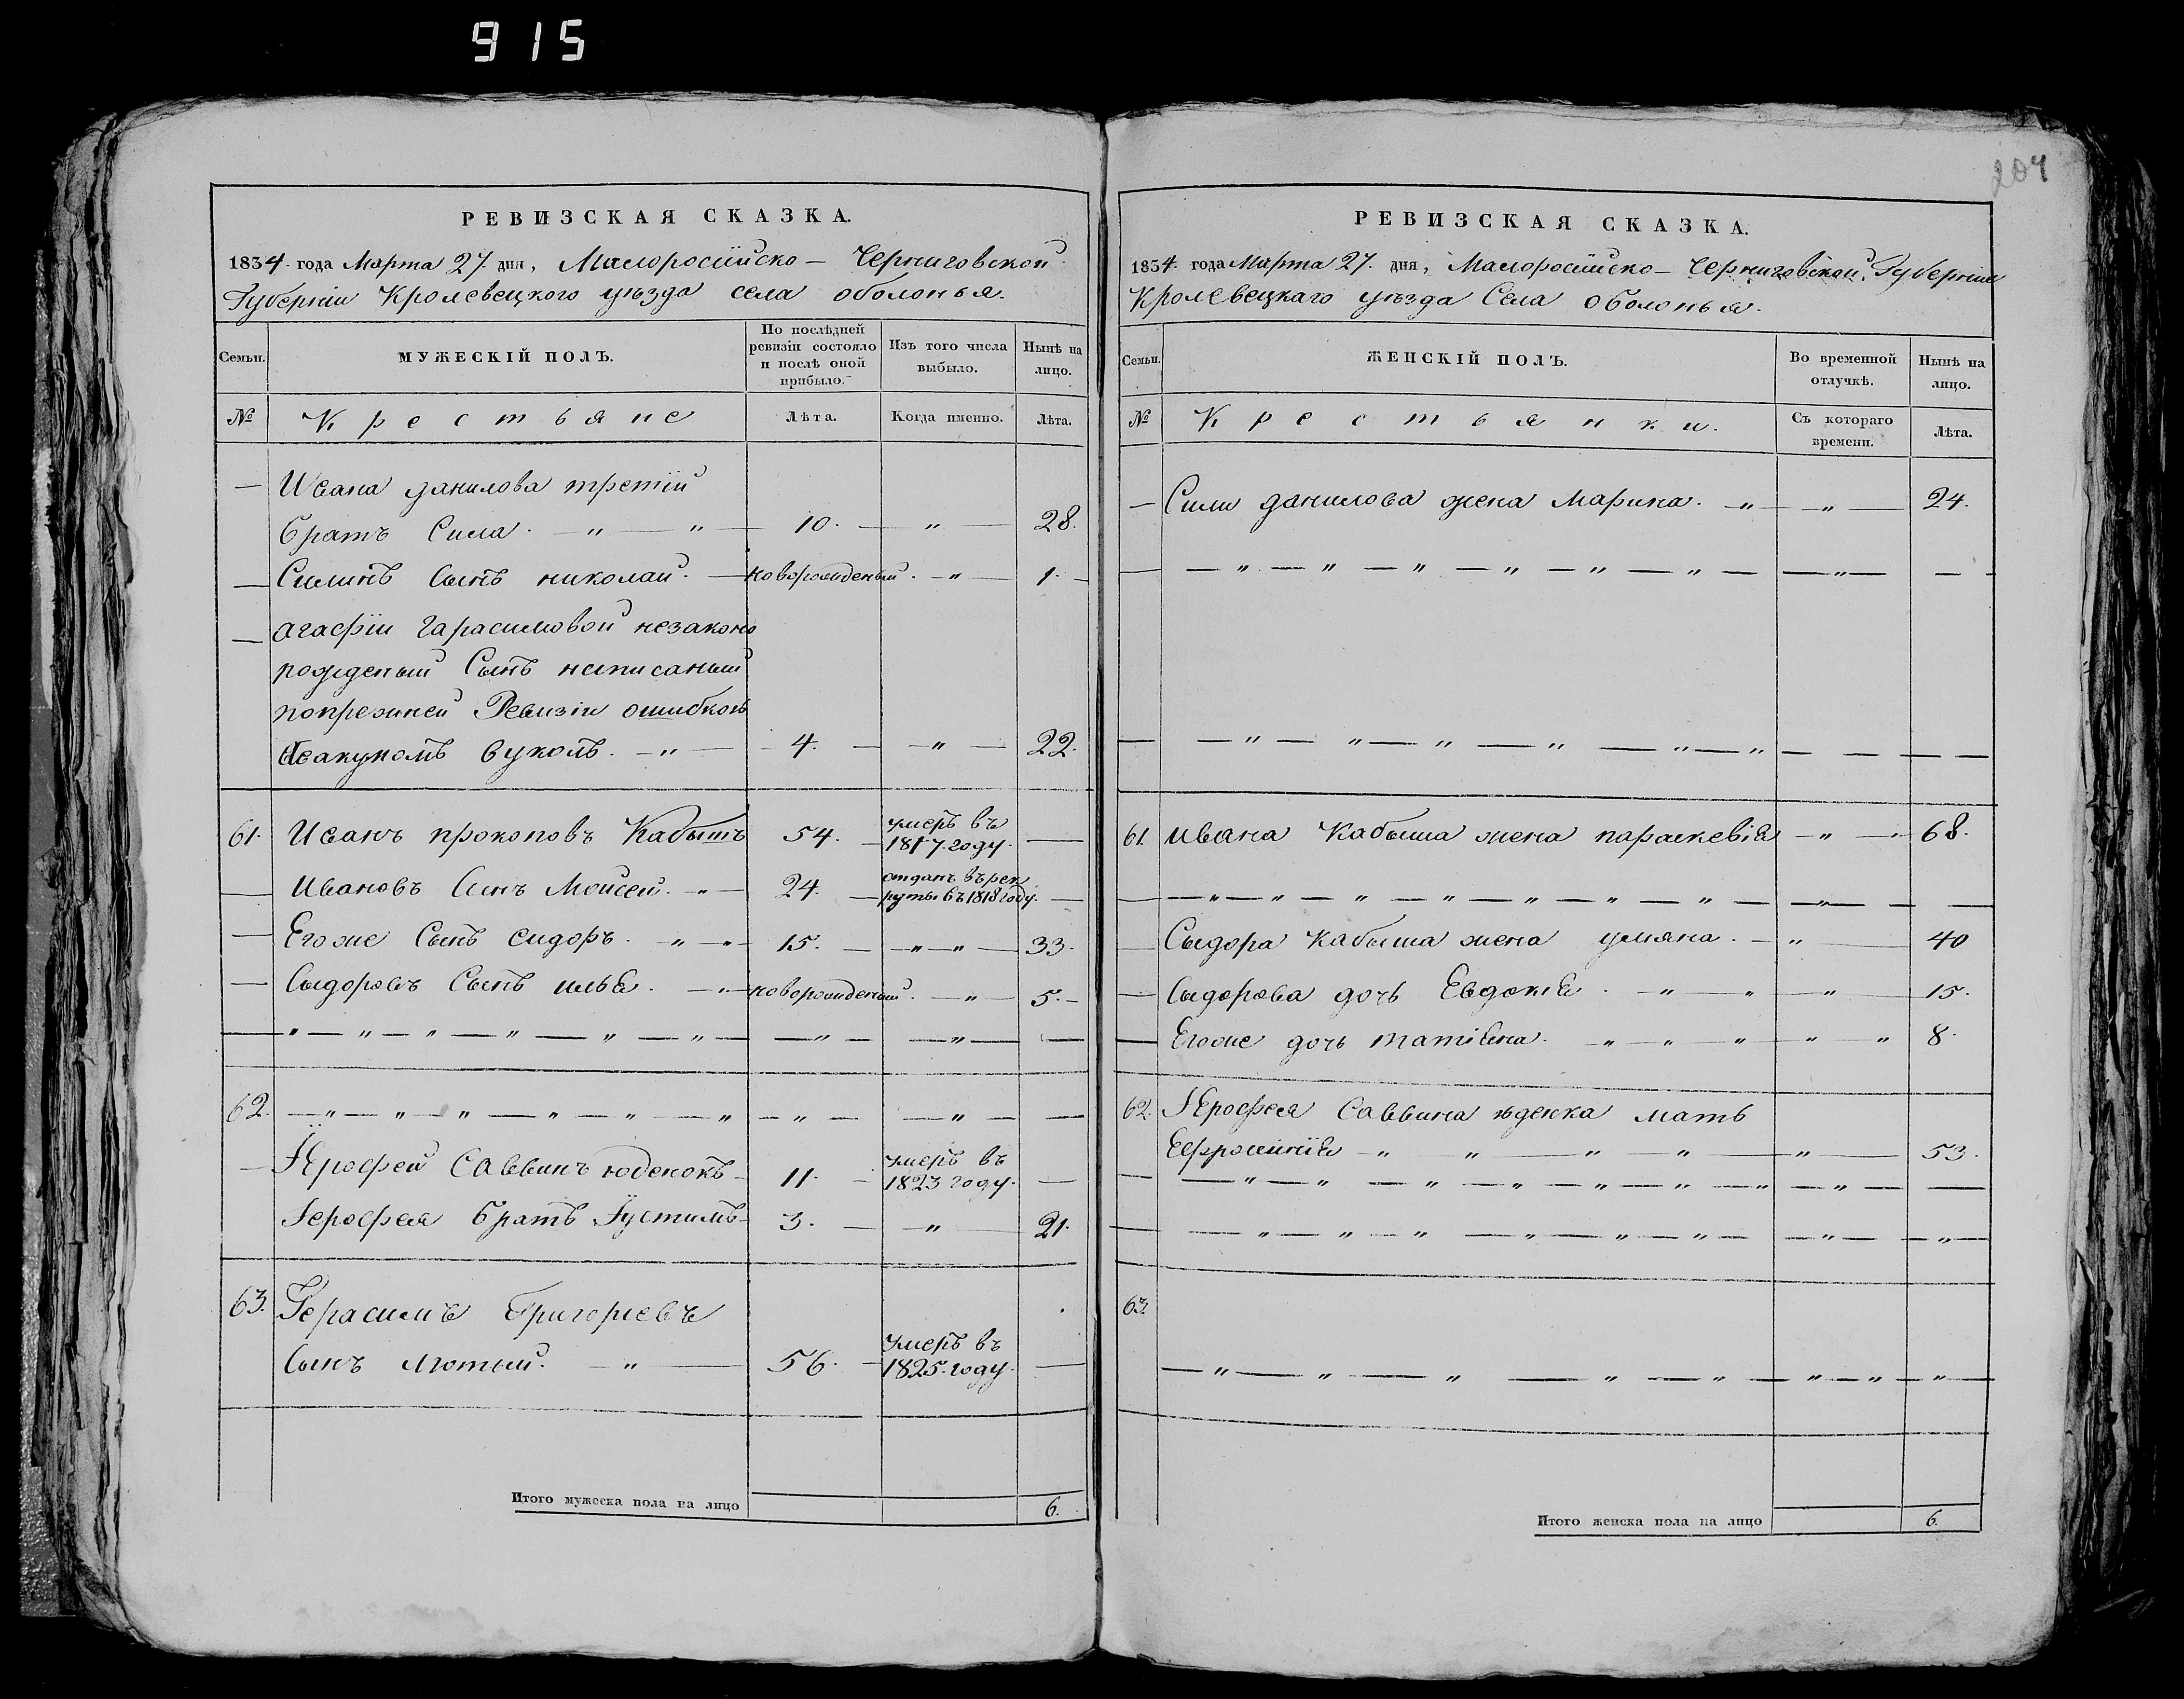 915
204
РЕВИЗСКАЯ СКАЗКА.
1834. года Марта 27. дня, Малоросiйско — Черниговской
Губернiи Кролевецкого уѣзда села оболонья.
Семьи. МУЖЕСКІЙ ПОЛЪ. По послѣдней ревизіи состояло и послѣ оной прибыло. Изъ того числа выбыло. Нынѣ на лицо.
№ Крестьяне Лѣта. Когда именно. Лѣта.
— Ивана данилова третiй
братъ Сила. — " — " — 10. — " — 28.
— Силинъ Сынъ николай. — новорожденый. — " — 1. —
— агафiи Гарасимовой незаконо
рожденый Сынъ неписаный
попрежней Ревизiи ошибкою
вуколъ. — " — 4. — " — 22.
61. Иванъ прокоповъ Кабышъ 54. — умеръ въ 1817. году. —
— Ивановъ Сынъ Моисей. — " — 24. — отданъ въ рек руты въ 1818 году. —
— Егоже Сынъ сидоръ. — " — " 15. — " — " — 33.
— Сыдоровъ Сынъ илья. — " — новорожденый. — " — 5. —
— " — " — " — " — " — " — " — " — —
62. — " — " — " — " — " — " — " — " — —
— Ярофей Саввинъ юденокъ — 11. — умеръ въ 1823 году. —
Герофея братъ Густимъ — 3. — " — 21.
63. Герасимъ Григорiевъ
Сынъ лютый. — " — 56. — умеръ въ 1825. году. —
Итого мужеска пола на лицо 6.
РЕВИЗСКАЯ СКАЗКА.
1834. года Марта 27. дня, Малоросiйско — Черниговской, Губернiи
Кролевецкаго уѣзда Села оболонья.
Семьи. ЖЕНСКІЙ ПОЛЪ. Во временной отлучкѣ. Нынѣ на лицо.
№ Крестьянки. Съ котораго времени. Лѣта.
— Силы данилова жена Марина. — " — " — 24.
— — " — " — " — " — " — " — — " — — —
— — " — " — " — " — " — " — — — —
61. ивана Кабыша жена параскевiя — " — 68.
— — " — " — " — " — " — " — " — — " — —
— Сыдора Кабыша жена уляна. — " — 40
— Сыдорова дочь Евдокiя. — " — " — " — 15.
— Егоже дочь татiяна. — " — " — " — " " 8.
62. Ярофея Саввина мать
Ефросинiя — " — " — " — " — " — 53.
— — " — " — " — " — " — " — " — " — —
— — " — " — " — " — " — " — — " — — " —
63.
— " — " — " — " — " — " — " — " —
Итого женска пола на лицо 6.